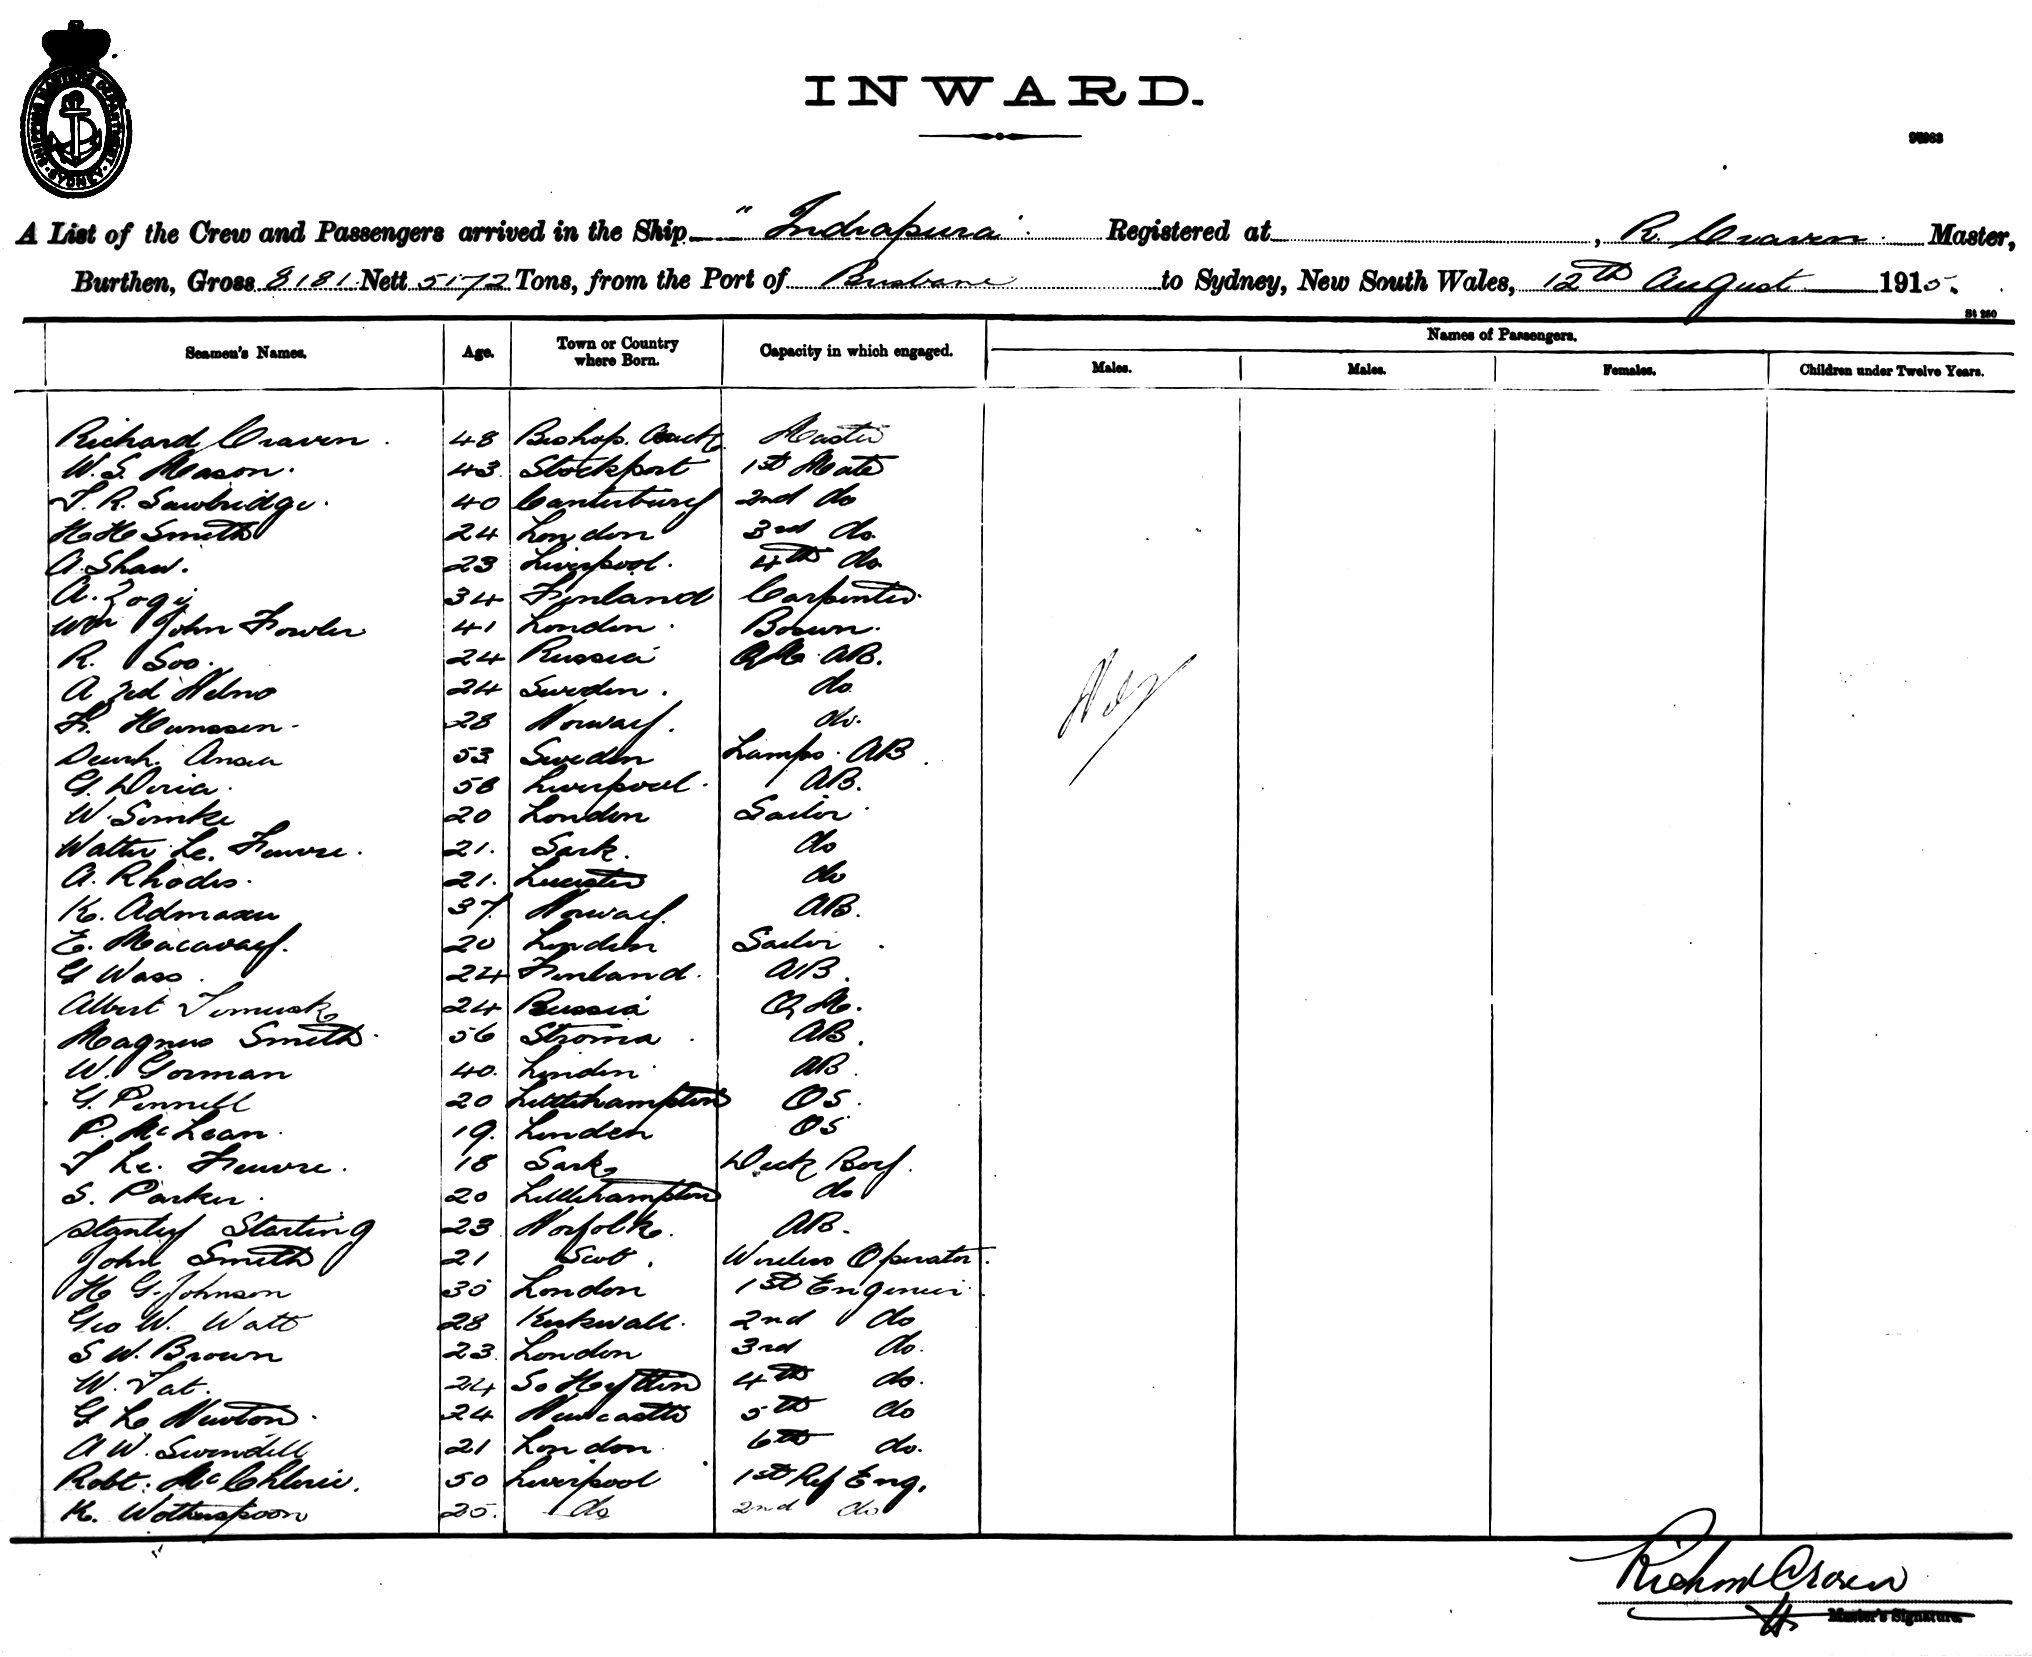 SHIPPING MASTERS DEPARTMENT. SYDNEY.
INWARD.
A List of the Crew and Passengers arrived in the Ship "Indrapura" Registered at , R. Craven Master,
Burthen, Gross 8181 Nett 5172 Tons, from the Port of Brisbane to Sydney, New South Wales, 12th August 1915.
St 250
Names of Passengers.
Seamen's Names. Age. Town or Country where Born. Capacity in which engaged. Males. Males. Females. Children under Twelve Years.
Richard Craven 48 Bishop Master
W. S. Mason 43 Stockport 1st Mate
T. R. Sawbridge 40 Canterbury 2nd do
H H Smith 24 London 3rd do
A. Shaw 23 Liverpool 4th do
A. 34 Finland Carpenter
Wm John Fowler 41 London Bosun
R. Soo 24 Russia QM AB.
A 24 Sweden do
F. Hanssen 28 Norway do
53 Sweden Lamps AB
G. 58 Liverpool AB.
W. 20 London Sailor
Walter Le Feuvre 21 Sark do
A. Rhodes 21 Leicester do
K. 37 Norway AB.
E. 20 London Sailor
G Wass 24 Finland AB
Albert 24 Russia Q M.
Magnus Smith 56 Stroma AB.
W. Gorman 40 London AB
G. Pennell 20 Littlehampton OS
P. McLean 19 London OS
T Le Feuvre 18 Sark Deck Boy
S. Parker 20 Littlehampton do
Stanley Starling 23 Norfolk AB.
John Smith 21 Scot Wireless Operator
H G. Johnson 30 London 1st Engineer
Geo W. Watt 28 Kirkwall 2nd do
S W. Brown 23 London 3rd do
W. 24 So 4th do
G L Newton 24 Newcastle 5th do
A W. Swindell 21 London 6th do
Robt. 50 Liverpool 1st Ref Eng.
K. Wotherspoon 25 do 2nd do
Richard Craven
Master's Signature.